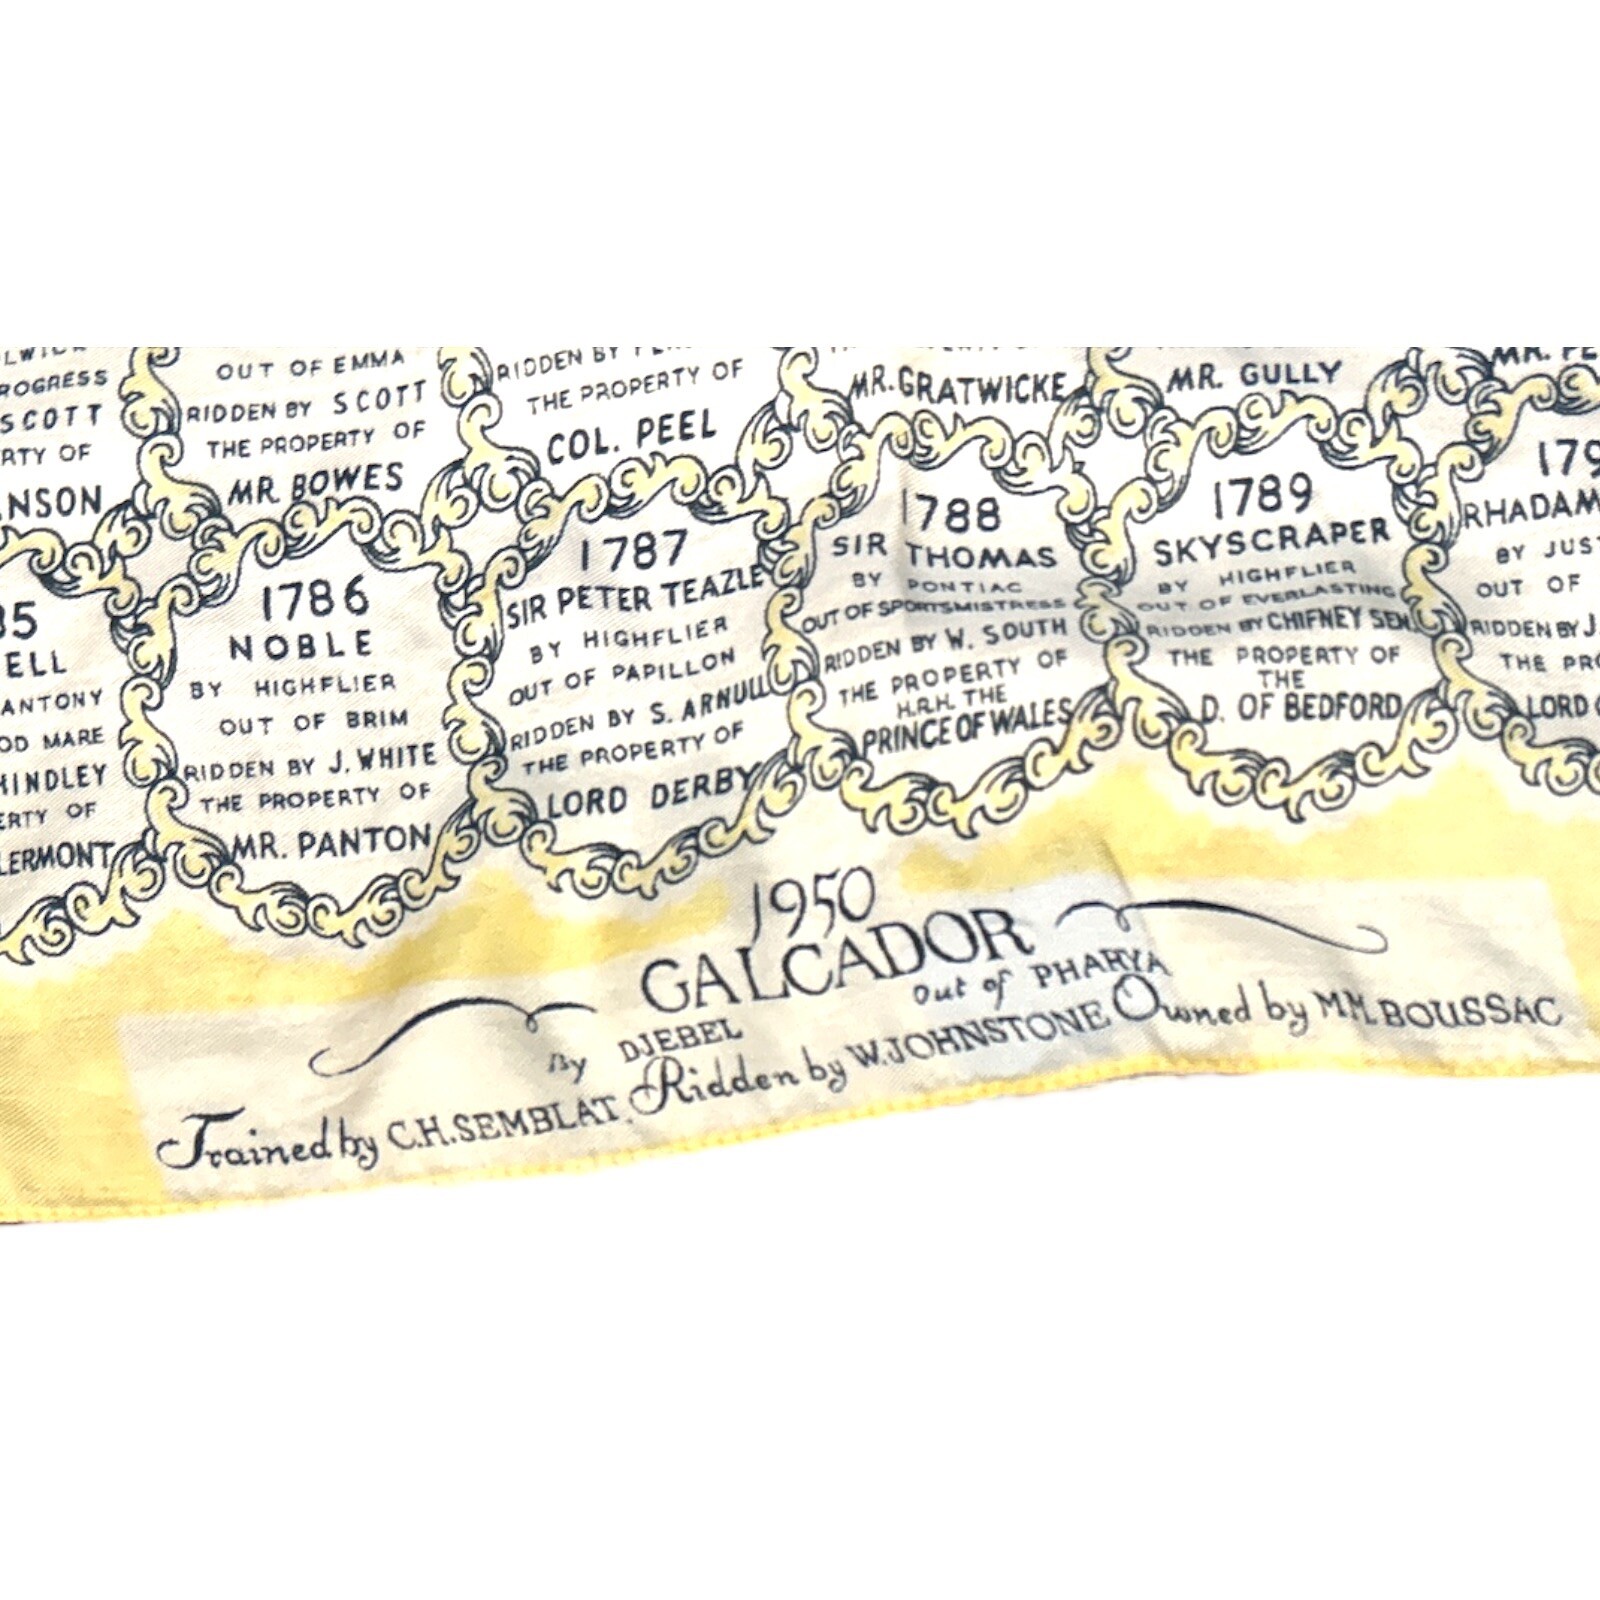 ROGRESS
SCOTT
RTY OF
NSON
OUT OF EMMA
RIDDEN BY SCOTT
THE PROPERTY OF
MR. BOWES
RIDDEN BY
THE PROPERTY OF
COL. PEEL
MR. GRATWICKE
MR. GULLY
85
ELL
ANTONY
OD MARE
HINDLEY
ERTY OF
LERMONT
1786
NOBLE
BY HIGHFLIER
OUT OF BRIM
RIDDEN BY J. WHITE
THE PROPERTY OF
MR. PANTON
1787
SIR PETER TEAZLE
BY HIGHFLIER
OUT OF PAPILLON
RIDDEN BY S. ARNULL
THE PROPERTY OF
LORD DERBY
1788
SIR THOMAS
BY PONTIAC
OUT OF SPORTSMISTRESS
RIDDEN BY W. SOUTH
THE PROPERTY OF
H.R.H. THE
PRINCE OF WALES
1789
SKYSCRAPER
BY HIGHFLIER
OUT OF EVERLASTING
RIDDEN BY CHIFNEY SEN
THE PROPERTY OF
THE
D. OF BEDFORD
179
RHADAM
BY JUS
OUT OF
RIDDEN BY J.
THE PRO
LORD
1950
GALCADOR
By DJEBEL Out of PHARYA
Trained by C.H.SEMBLAT. Ridden by W.JOHNSTONE Owned by M.M.BOUSSAC